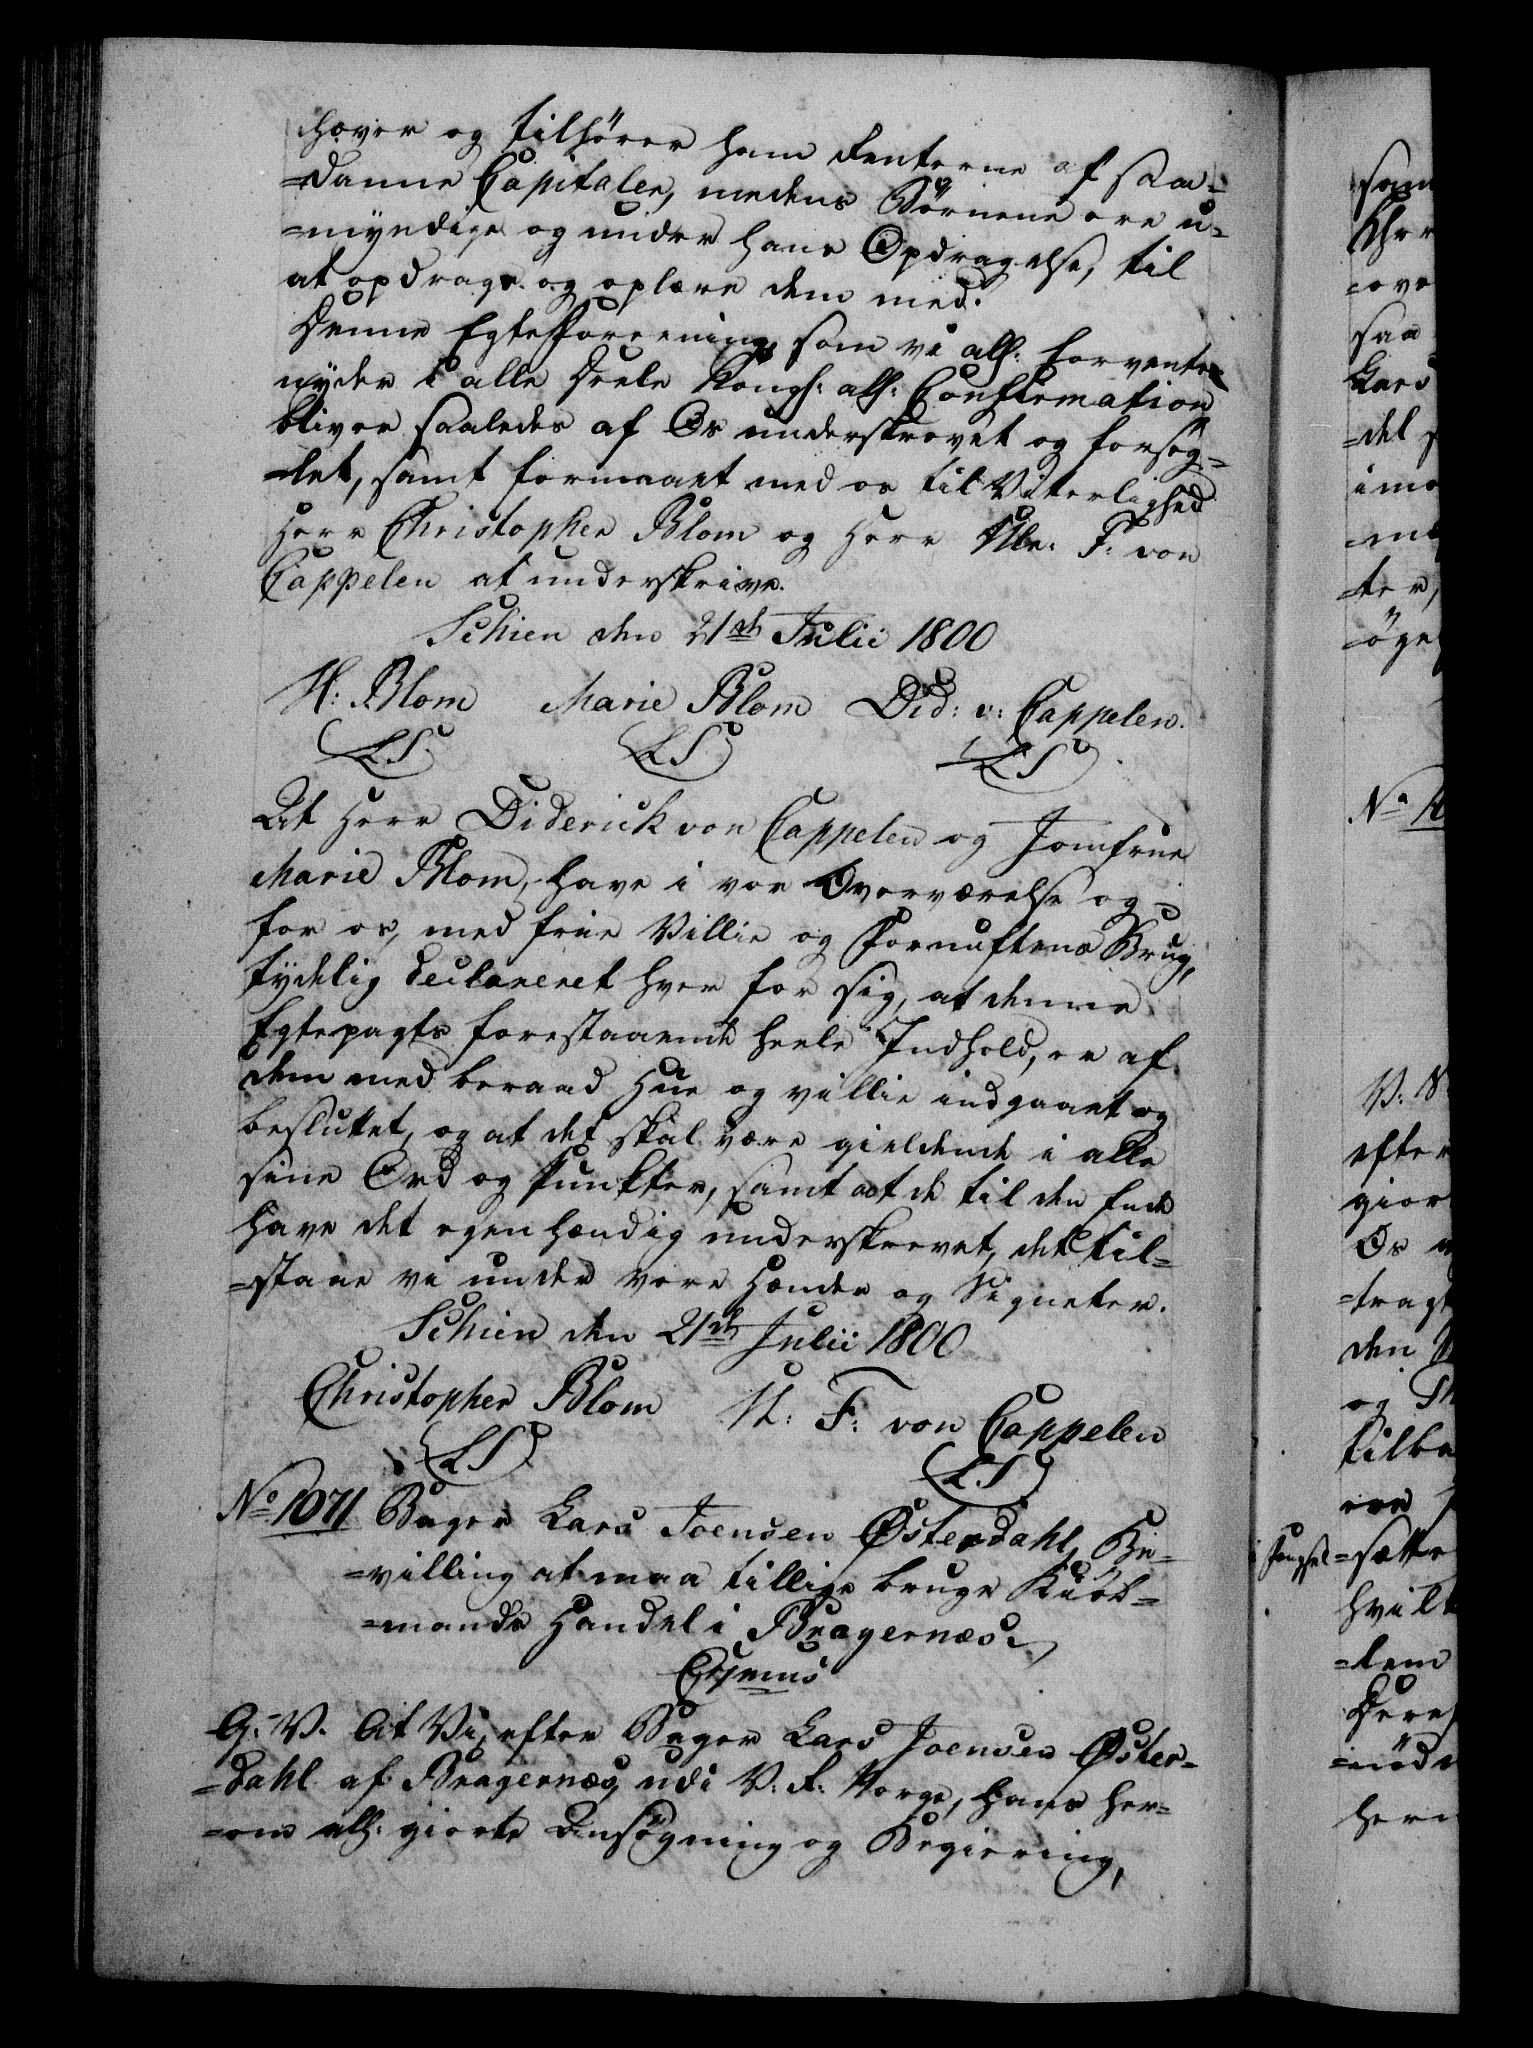 hæver og tilhører ham Renterne af saa-
=danne Capitaler, medens Börnene ere u-
=myndige og under hans Opdragelse, til
at opdrage og oplære dem med.
Denne Egteforeening, som vi allh: forvente
nyder i alle Deele Kongl: allh: Confirmation
bliver saaledes af Os underskrevet og forseg-
=let, samt formaaet med os til Vitterlighed
Herr Christopher Blom og Herr Ulr: F: von
Cappelen at underskrive.
Schien den 21de Julii 1800
H: Blom Marie Blom Did: v: Cappelen.
LS LS LS
At Herr Diderick von Cappelen og Jomfrue
Marie Blom, have i vor Overværelse og
for os, med frie Villie og Fornuftens Brug,
tydelig declareret hver for sig, at denne
Egtepagts forestaaende heele Indhold, er af
dem med beraad Hue og villie indgaaet og
besluttet, og at det skal være gieldende i alle
sine Ord og Punkter, samt at de til den Ende
have det egenhændig underskrevet, det til-
=staae vi under vore Hænder og Signeter.
Schien den 21de Julii 1800
Christopher Blom U: F: von Cappelen
LS L.S
No 1071 Bager Lars Joensen Østerdahl, Be-
=villing at maa tillige bruge Kiöb-
=mands Handel i Bragernæs.
C7mus
G: V. At Vi, efter Bager Lars Joensen Øster-
=dahl af Bragernæs, udi V: R: Norge, hans her-
=om allh: giorte Ansøgning og Begiering,